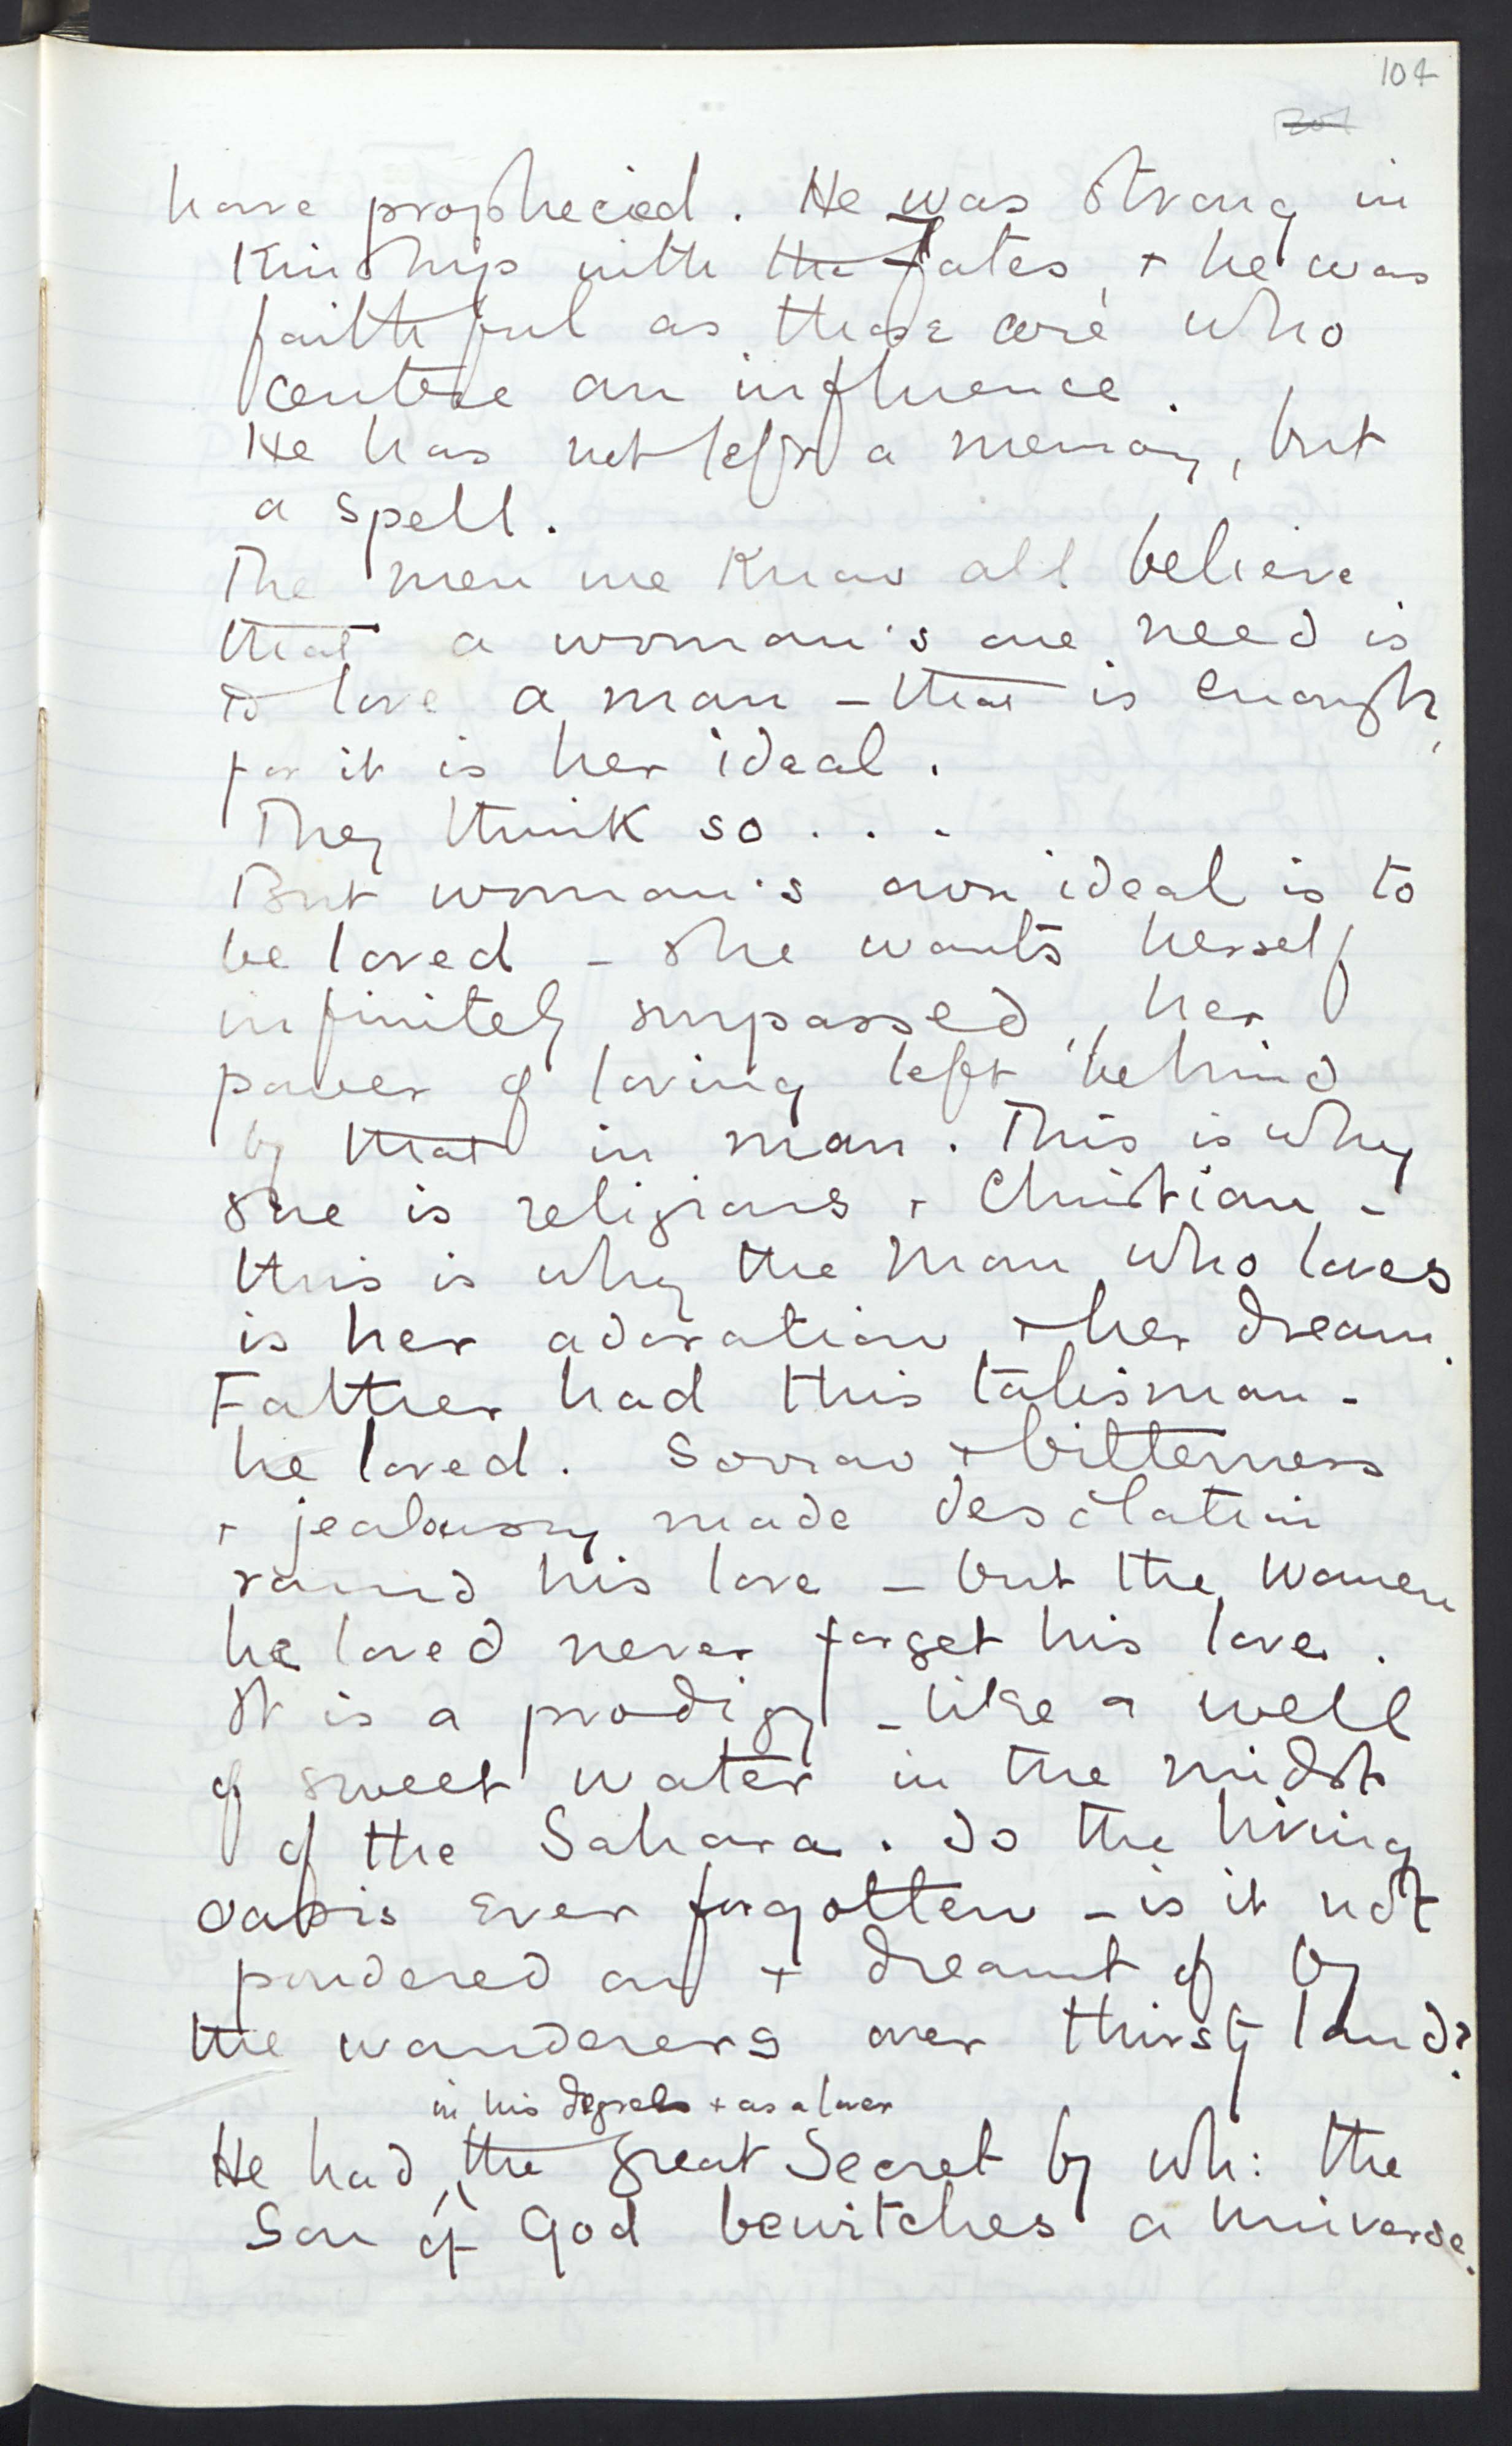 104
have prophecied. He was strong in
Kinship with the Fates, + he was
faithful as those are who
centre an influence.
He has not left a memory, but
a spell.
The men we know all believe
that a woman's one need is
to love a man – that is enough,
for it is her ideal.
They think so . . .
But woman's own ideal is to
be loved – she wants herself
infinitely surpassed, her
power of loving left behind
by that in man. This is why
she is religious + Christian –
this is why the man who loves
is her adoration + her dream.
Father had this talisman –
he loved. Sorrow + bitterness
+ jealousy made desolation
round his love – but the women
he loved never forget his love.
It is a prodigy – like a well
of sweet water in the midst
of the Sahara. Is the living
oasis ever forgotten – is it not
pondered on + dreamt of by
the wanderers over thirsty land?
in his degree + as a lover
He had the great Secret by wh: the
Son of God bewitches a universe.